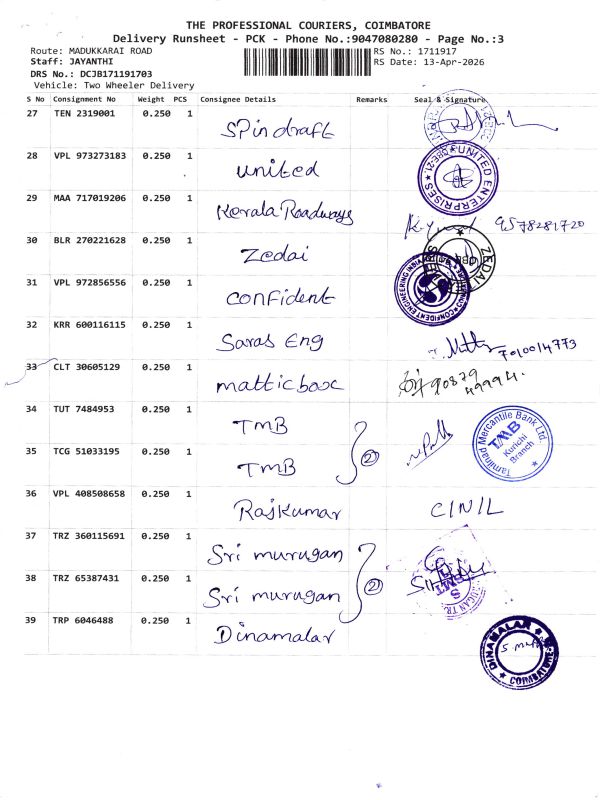 THE PROFESSIONAL COURIERS, COIMBATORE
Delivery Runsheet - PCK - Phone No.:9047080280 - Page No.:3
Route: MADUKKARAI ROAD RS No.: 1711917
Staff: JAYANTHI RS Date: 13-Apr-2026
DRS No.: DCJB171191703
Vehicle: Two Wheeler Delivery
S No Consignment No Weight PCS Consignee Details Remarks Seal & Signature
27 TEN 2319001 0.250 1 Spindraft
28 VPL 973273183 0.250 1 united UNITED ENTERPRISES
29 MAA 717019206 0.250 1 Kerala Roadways 9578281720
30 BLR 270221628 0.250 1 Zedai ZEDAI
31 VPL 972856556 0.250 1 confident CONFIDENT ENGINEERING INDIA
32 KRR 600116115 0.250 1 Saras Eng 7010014773
33 CLT 30605129 0.250 1 matticboxe 90879 49994
34 TUT 7484953 0.250 1 TMB
35 TCG 51033195 0.250 1 TMB 2 Tamilnad Mercantile Bank Ltd TMB Kurichi Branch
36 VPL 408508658 0.250 1 Rajkumar C/N/L
37 TRZ 360115691 0.250 1 Sri murugan
38 TRZ 65387431 0.250 1 Sri murugan 2
39 TRP 6046488 0.250 1 Dinamalar DINAMALAR COIMBATORE